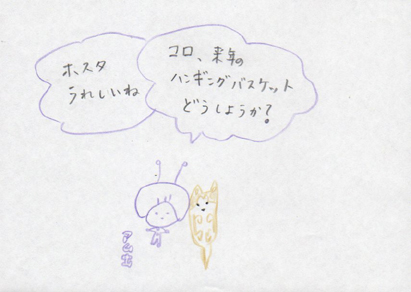 ホスタ
うれしいね
コロ、来年の
ハンギングバスケット
どうしようか?